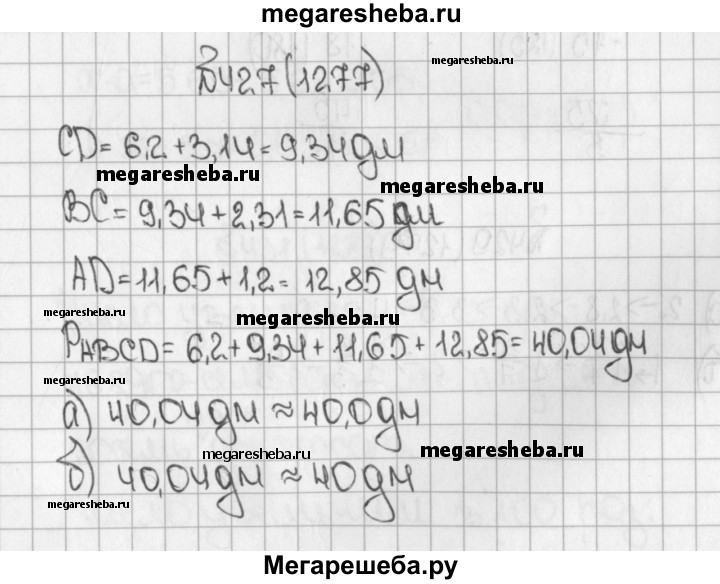 megaresheba.ru
№427 (1277)
megaresheba.ru
CD = 6,2 + 3,14 = 9,34 дм
megaresheba.ru
megaresheba.ru
BC = 9,34 + 2,31 = 11,65 дм
AD = 11,65 + 1,2 = 12,85 дм
megaresheba.ru
megaresheba.ru
PABCD = 6,2 + 9,34 + 11,65 + 12,85 = 40,04 дм
megaresheba.ru
а) 40,04 дм ≈ 40,0 дм
megaresheba.ru
megaresheba.ru
б) 40,04 дм ≈ 40 дм
megaresheba.ru
Мегарешеба.ру